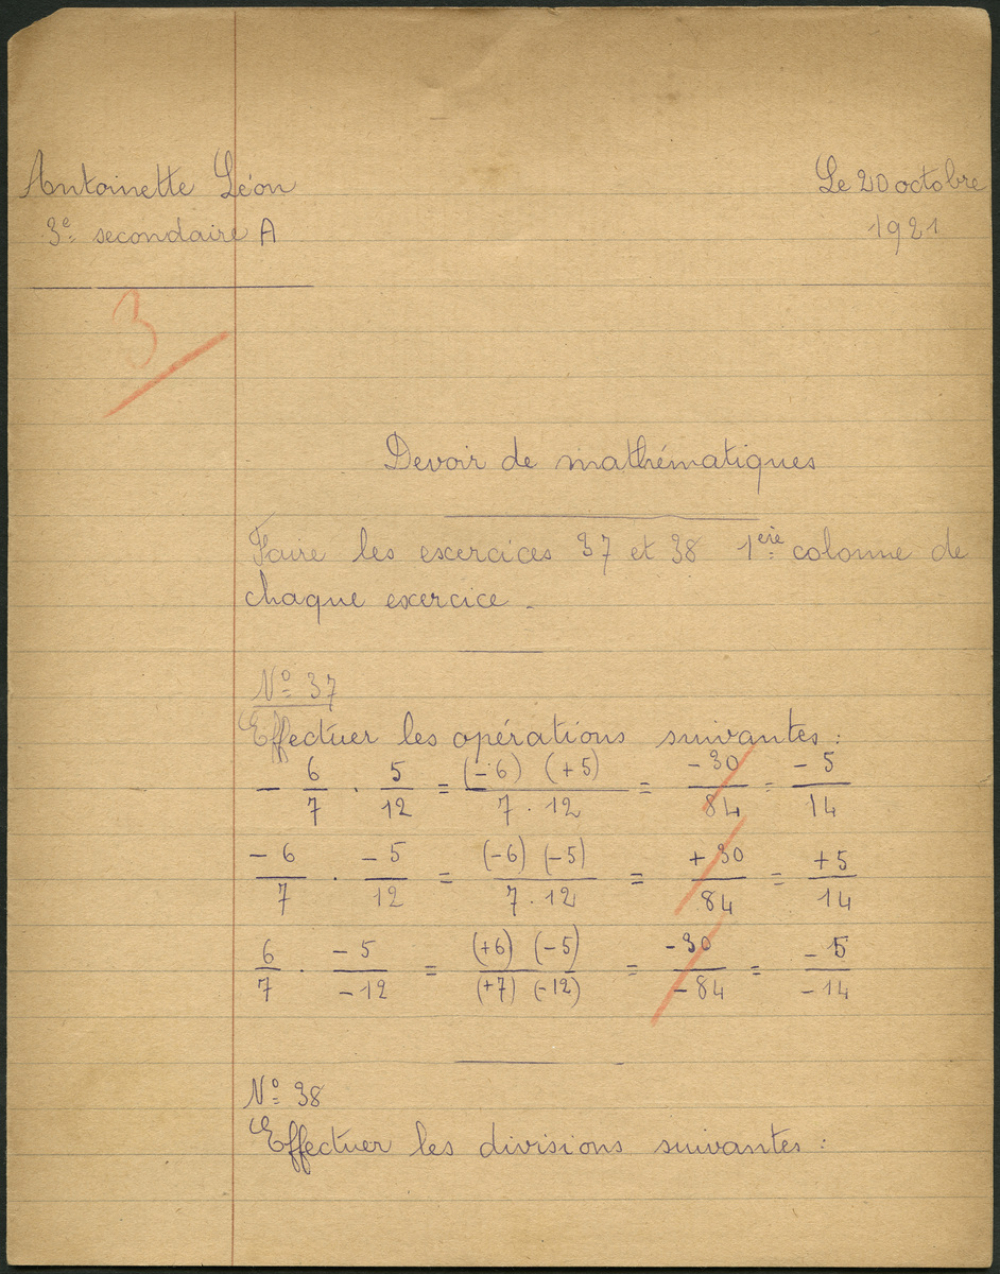 Antoinette Léon
Le 20 octobre
3e secondaire A
1921
3
Devoir de mathématiques
Faire les exercices 37 et 38 1ère colonne de
chaque exercice.
No 37
Effectuer les opérations suivantes :
- 6/7 . 5/12 = (-6) (+5) / 7 . 12 = -30/84 = -5/14
-6/7 . -5/12 = (-6) (-5) / 7 . 12 = +30/84 = +5/14
6/7 . -5/-12 = (+6) (-5) / (+7) (-12) = -30/-84 = -5/-14
No 38
Effectuer les divisions suivantes :